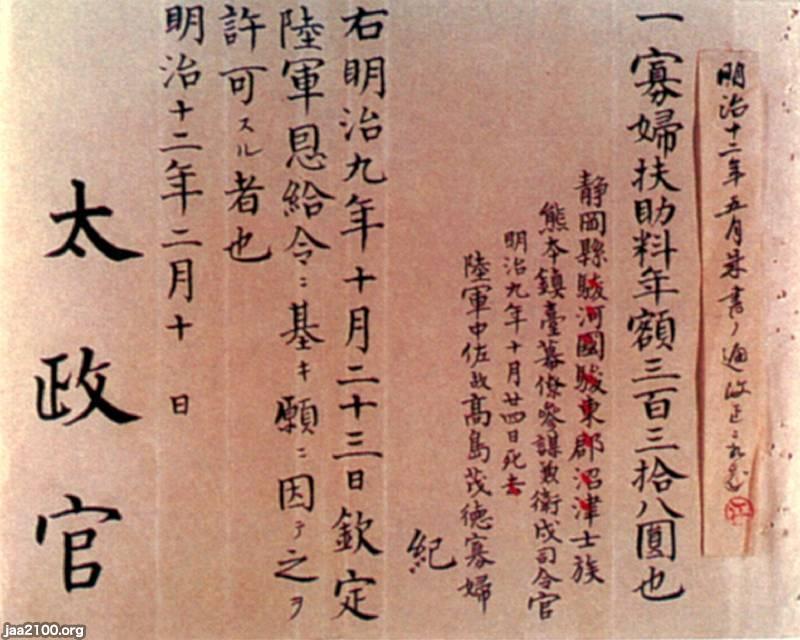 明治十二年五月朱書ノ通改正
一寡婦扶助料年額三百三拾八圓也
静岡縣駿河國駿東郡沼津士族
熊本鎮臺幕僚參謀兼衛戍司令官
明治九年十月廿四日死去
陸軍中佐故髙島茂徳寡婦
紀
右明治九年十月二十三日欽定
陸軍恩給令ニ基キ願ニ因テ之ヲ
許可スル者也
明治十二年二月十日
太政官
jaa2100.org